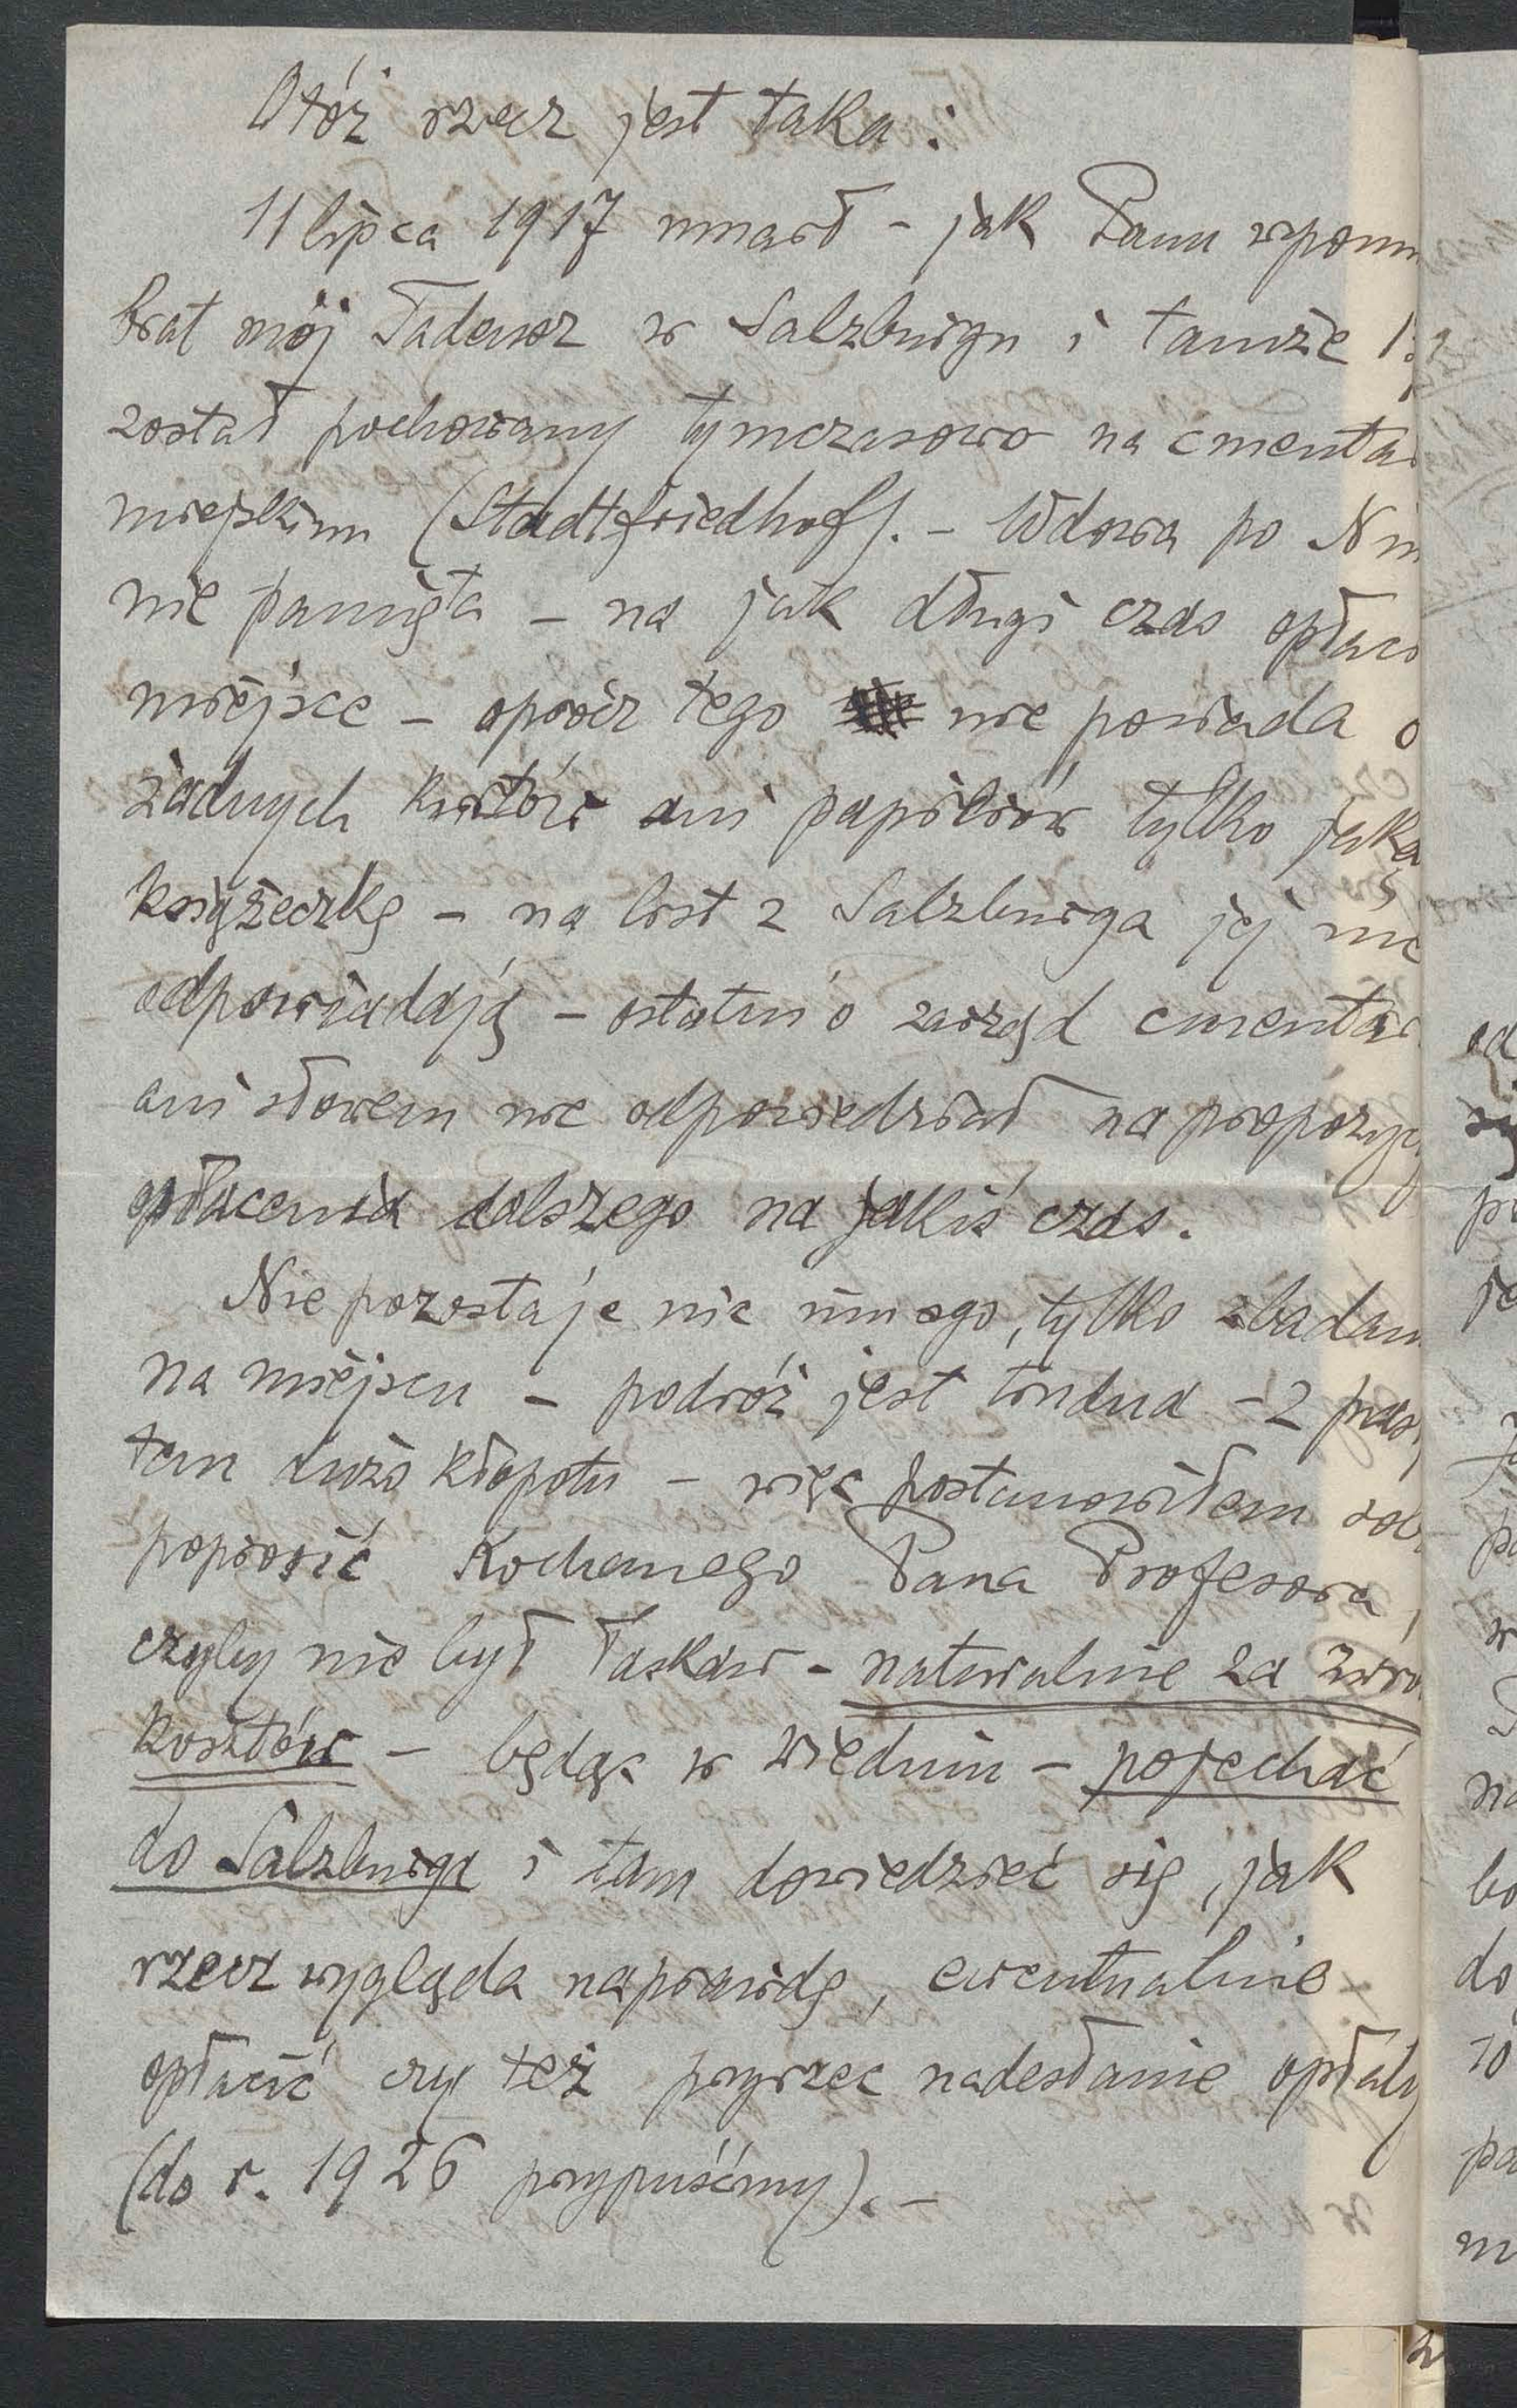 Otóż rzecz jest taka:
11 lipca 1917 umarł - jak Panu wpomn
brat mój Tadeusz w Salzburgu i tamże
został pochowany tymczasowo na cmenta
miejskim (Stadtfriedhof). - Wdowa po Nim
nie pamięta - na jak długi czas opłaco
miejsce - oprócz tego nie posiada o
żadnych kwitów ani papierów tylko jaką
książeczkę - na list z Salzburga jej nie
odpowiadają - ostatnio zarząd cmentar
ani słowem nie odpowiedział na propozyc
opłacenia dalszego na jakiś czas.
Nie pozostaje nic innego, tylko zbadan
na miejscu - podróż jest trudna - z pasz
tem dużo kłopotu - więc postanowiłem
poprosić Kochanego Pana Profesora,
czyby nie był łaskaw - naturalnie za zwro
kosztów - będąc w Wiedniu - pojechać
do Salzburga i tam dowiedzieć się, jak
rzecz wygląda naprawdę, ewentualnie
opłacić czy też przyrzec nadesłanie opłaty
(do r. 1926 przypuśćmy). -